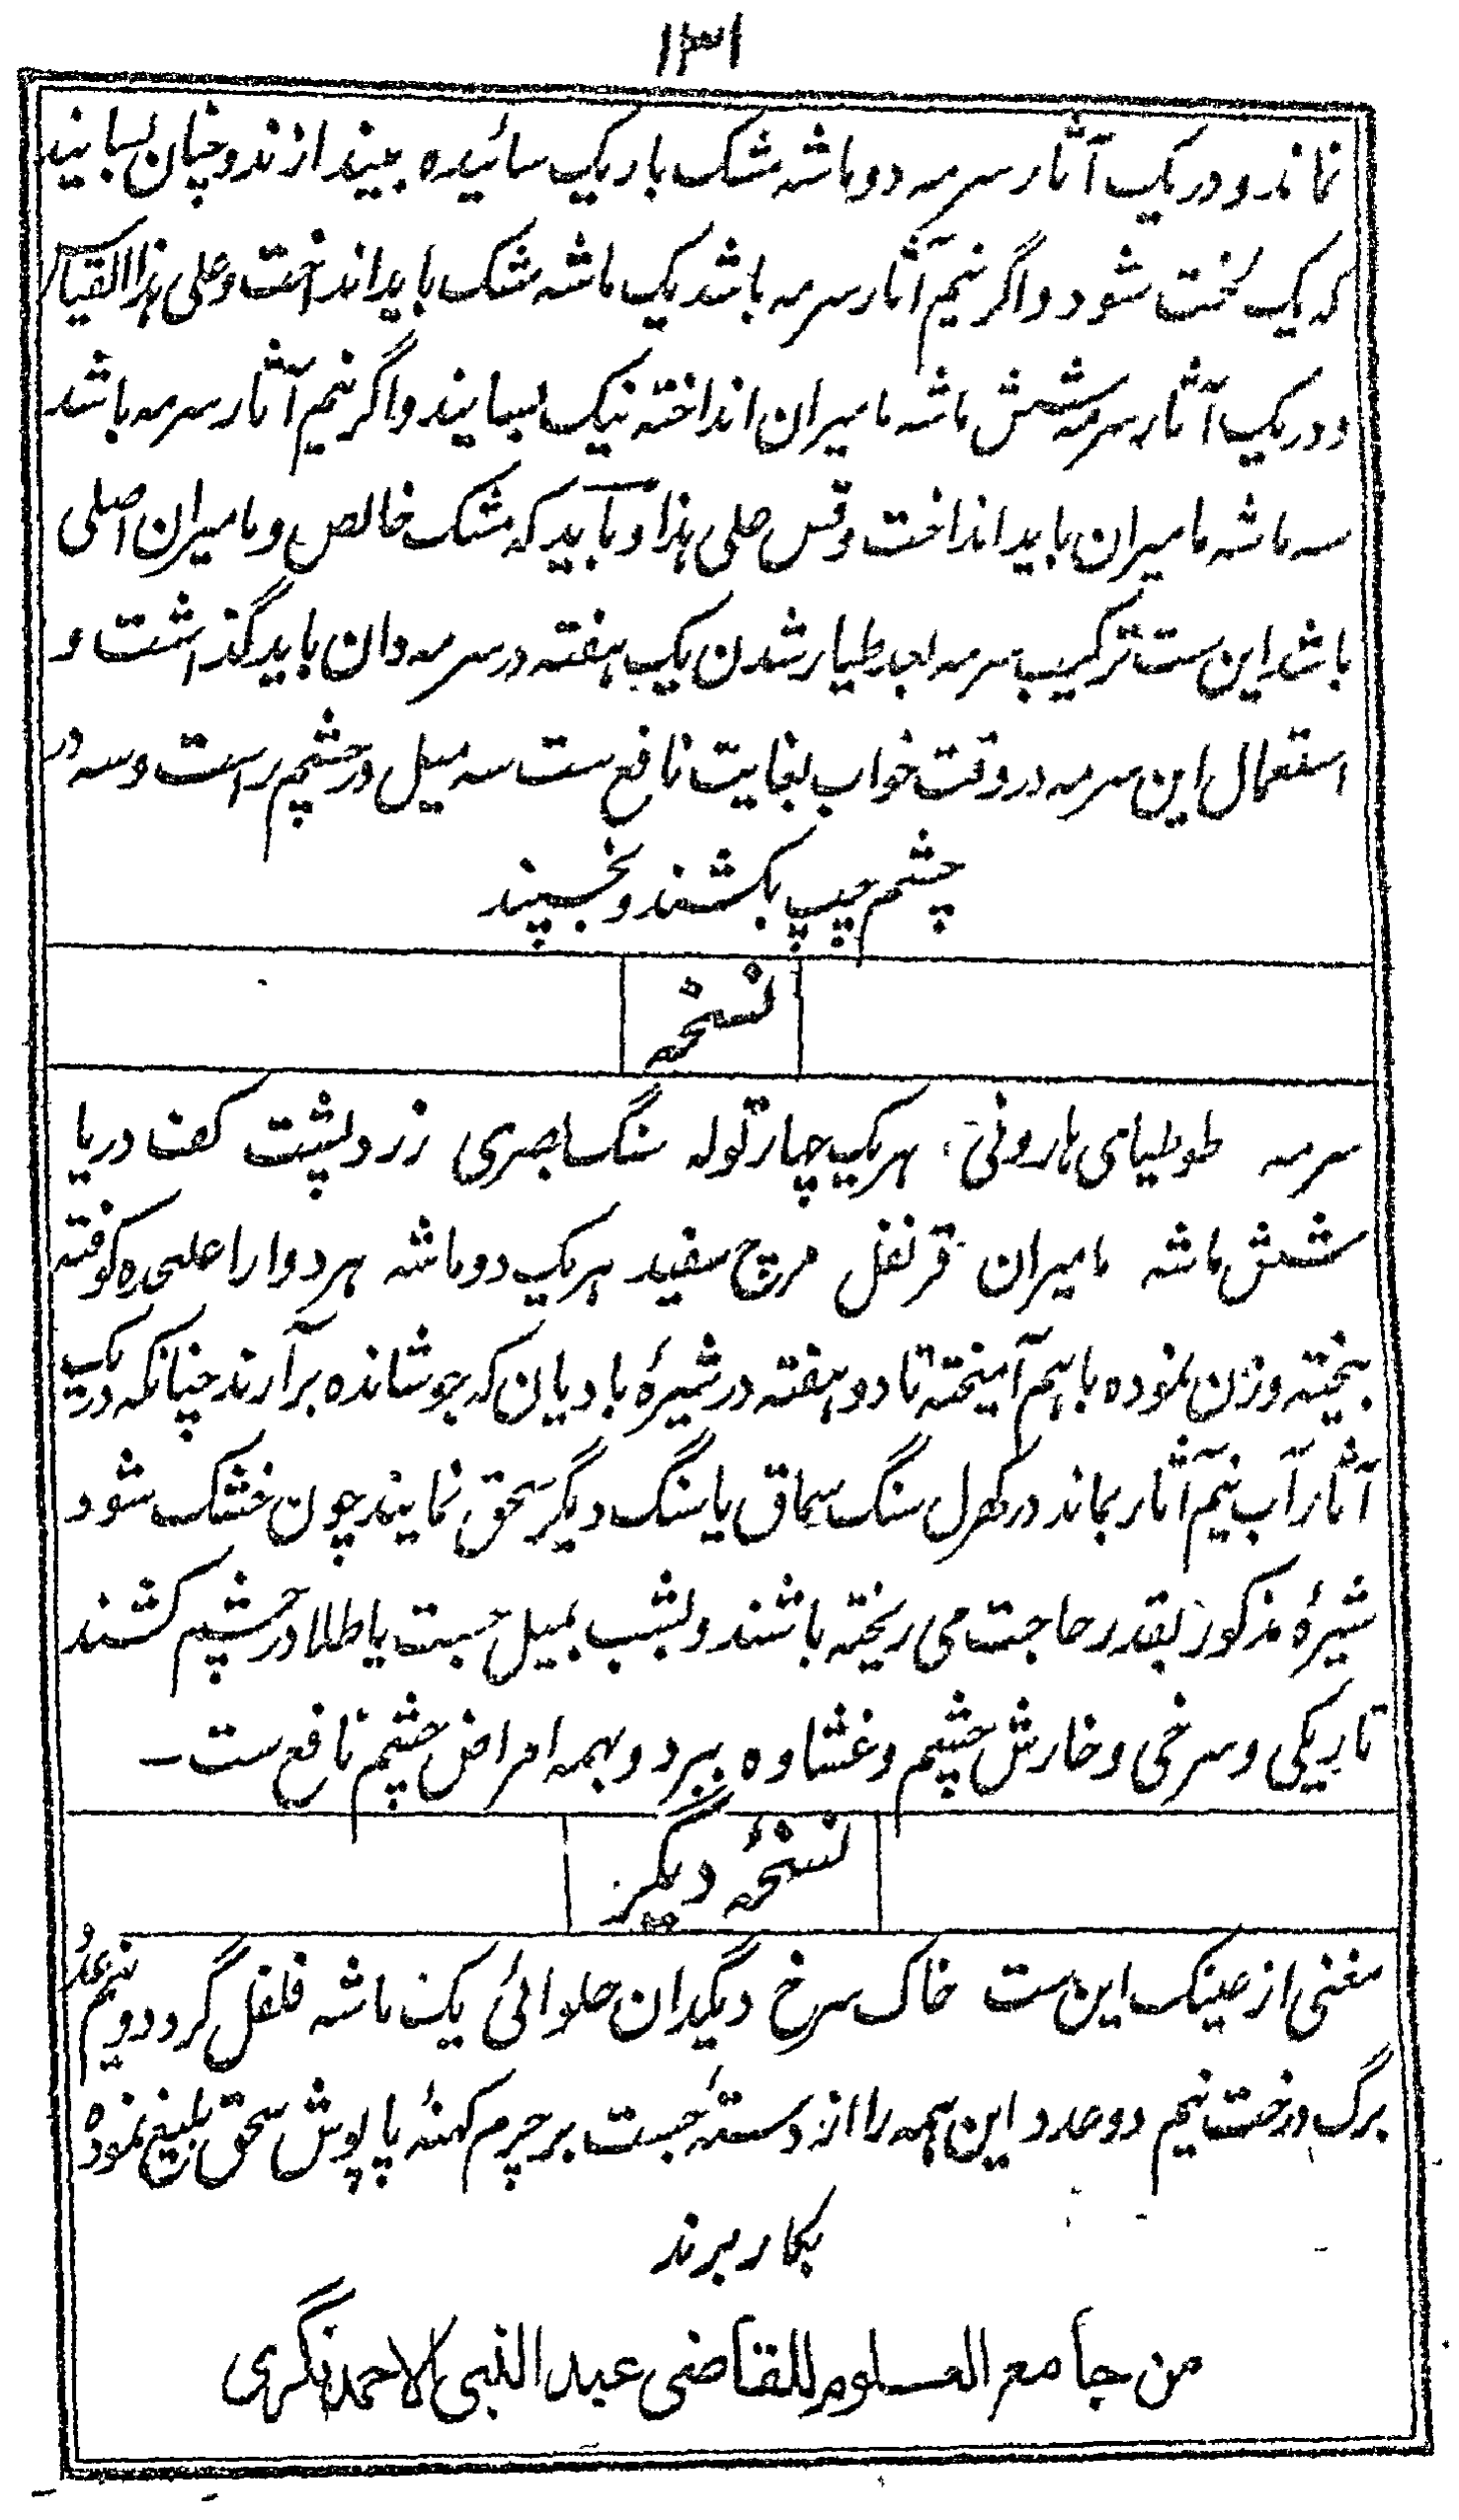 ۱۳۱
نماند و در یک آثار سرمه دو ماشه مشک باریک سائیده بیندازند و چنان بسایند
که یک لخت شود و اگر نیم آثار سرمه باشد یک ماشه مشک باید انداخت و علی هذا القیاس
و در یک آثار سرمه شش ماشه مامیران انداخته نیک بسایند و اگر نیم آثار سرمه باشد
سه ماشه مامیران باید انداخت وقس علی هذا و باید که مشک خالص و مامیران اصلی
باشد این ست ترکیب سرمه بعد طیار شدن یک هفته در سرمه دان باید گذاشت و
استعمال این سرمه در وقت خواب بغایت نافع ست سه میل در چشم راست و سه در
چشم چپ بکشند و بخسپند
نسخه
سرمه طوطیای هارونی هریک چهار توله سنگ بصری زرد پشت کف دریا
شش ماشه مامیران قرنفل مرچ سفید هریک دو ماشه هر دوا را علحده کوفته
بیخته وزن نموده باهم آمیخته تا دو هفته در شیرۀ بادیان که جوشانده برآرند چنانکه در یک
آثار آب نیم آثار بماند در کهرل سنگ سماق یا سنگ دیگر سحق نمایند چون خشک شود
شیرۀ مذکور بقدر حاجت می ریخته باشند و بشب بمیل جست یا طلا در چشم کشند
تاریکی و سرخی و خارش چشم و غشاوه ببرد و بهمه امراض چشم نافع ست
نسخۀ دیگر
مغنی از عینک این ست خاک سرخ دیگدان حلوائی یک ماشه فلفل گرد دو نیم عدد
برگ درخت نیم دو عدد این همه را از دستۀ جست بر چرم کهنۀ پاپوش سحق بلیغ نموده
بکار برند
من جامع العلوم للقاضی عبد النبی الاحمدنگری